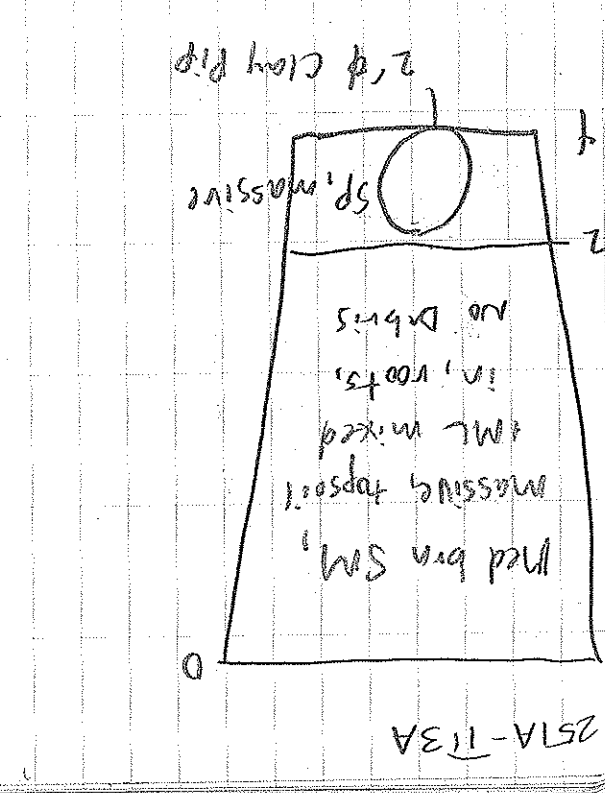 251A-TT3A
0
Med brn SM,
massive, topsoil
+ML mixed
in, roots,
no Debris
2
SP, massive
4
2'ϕ Clay Pip